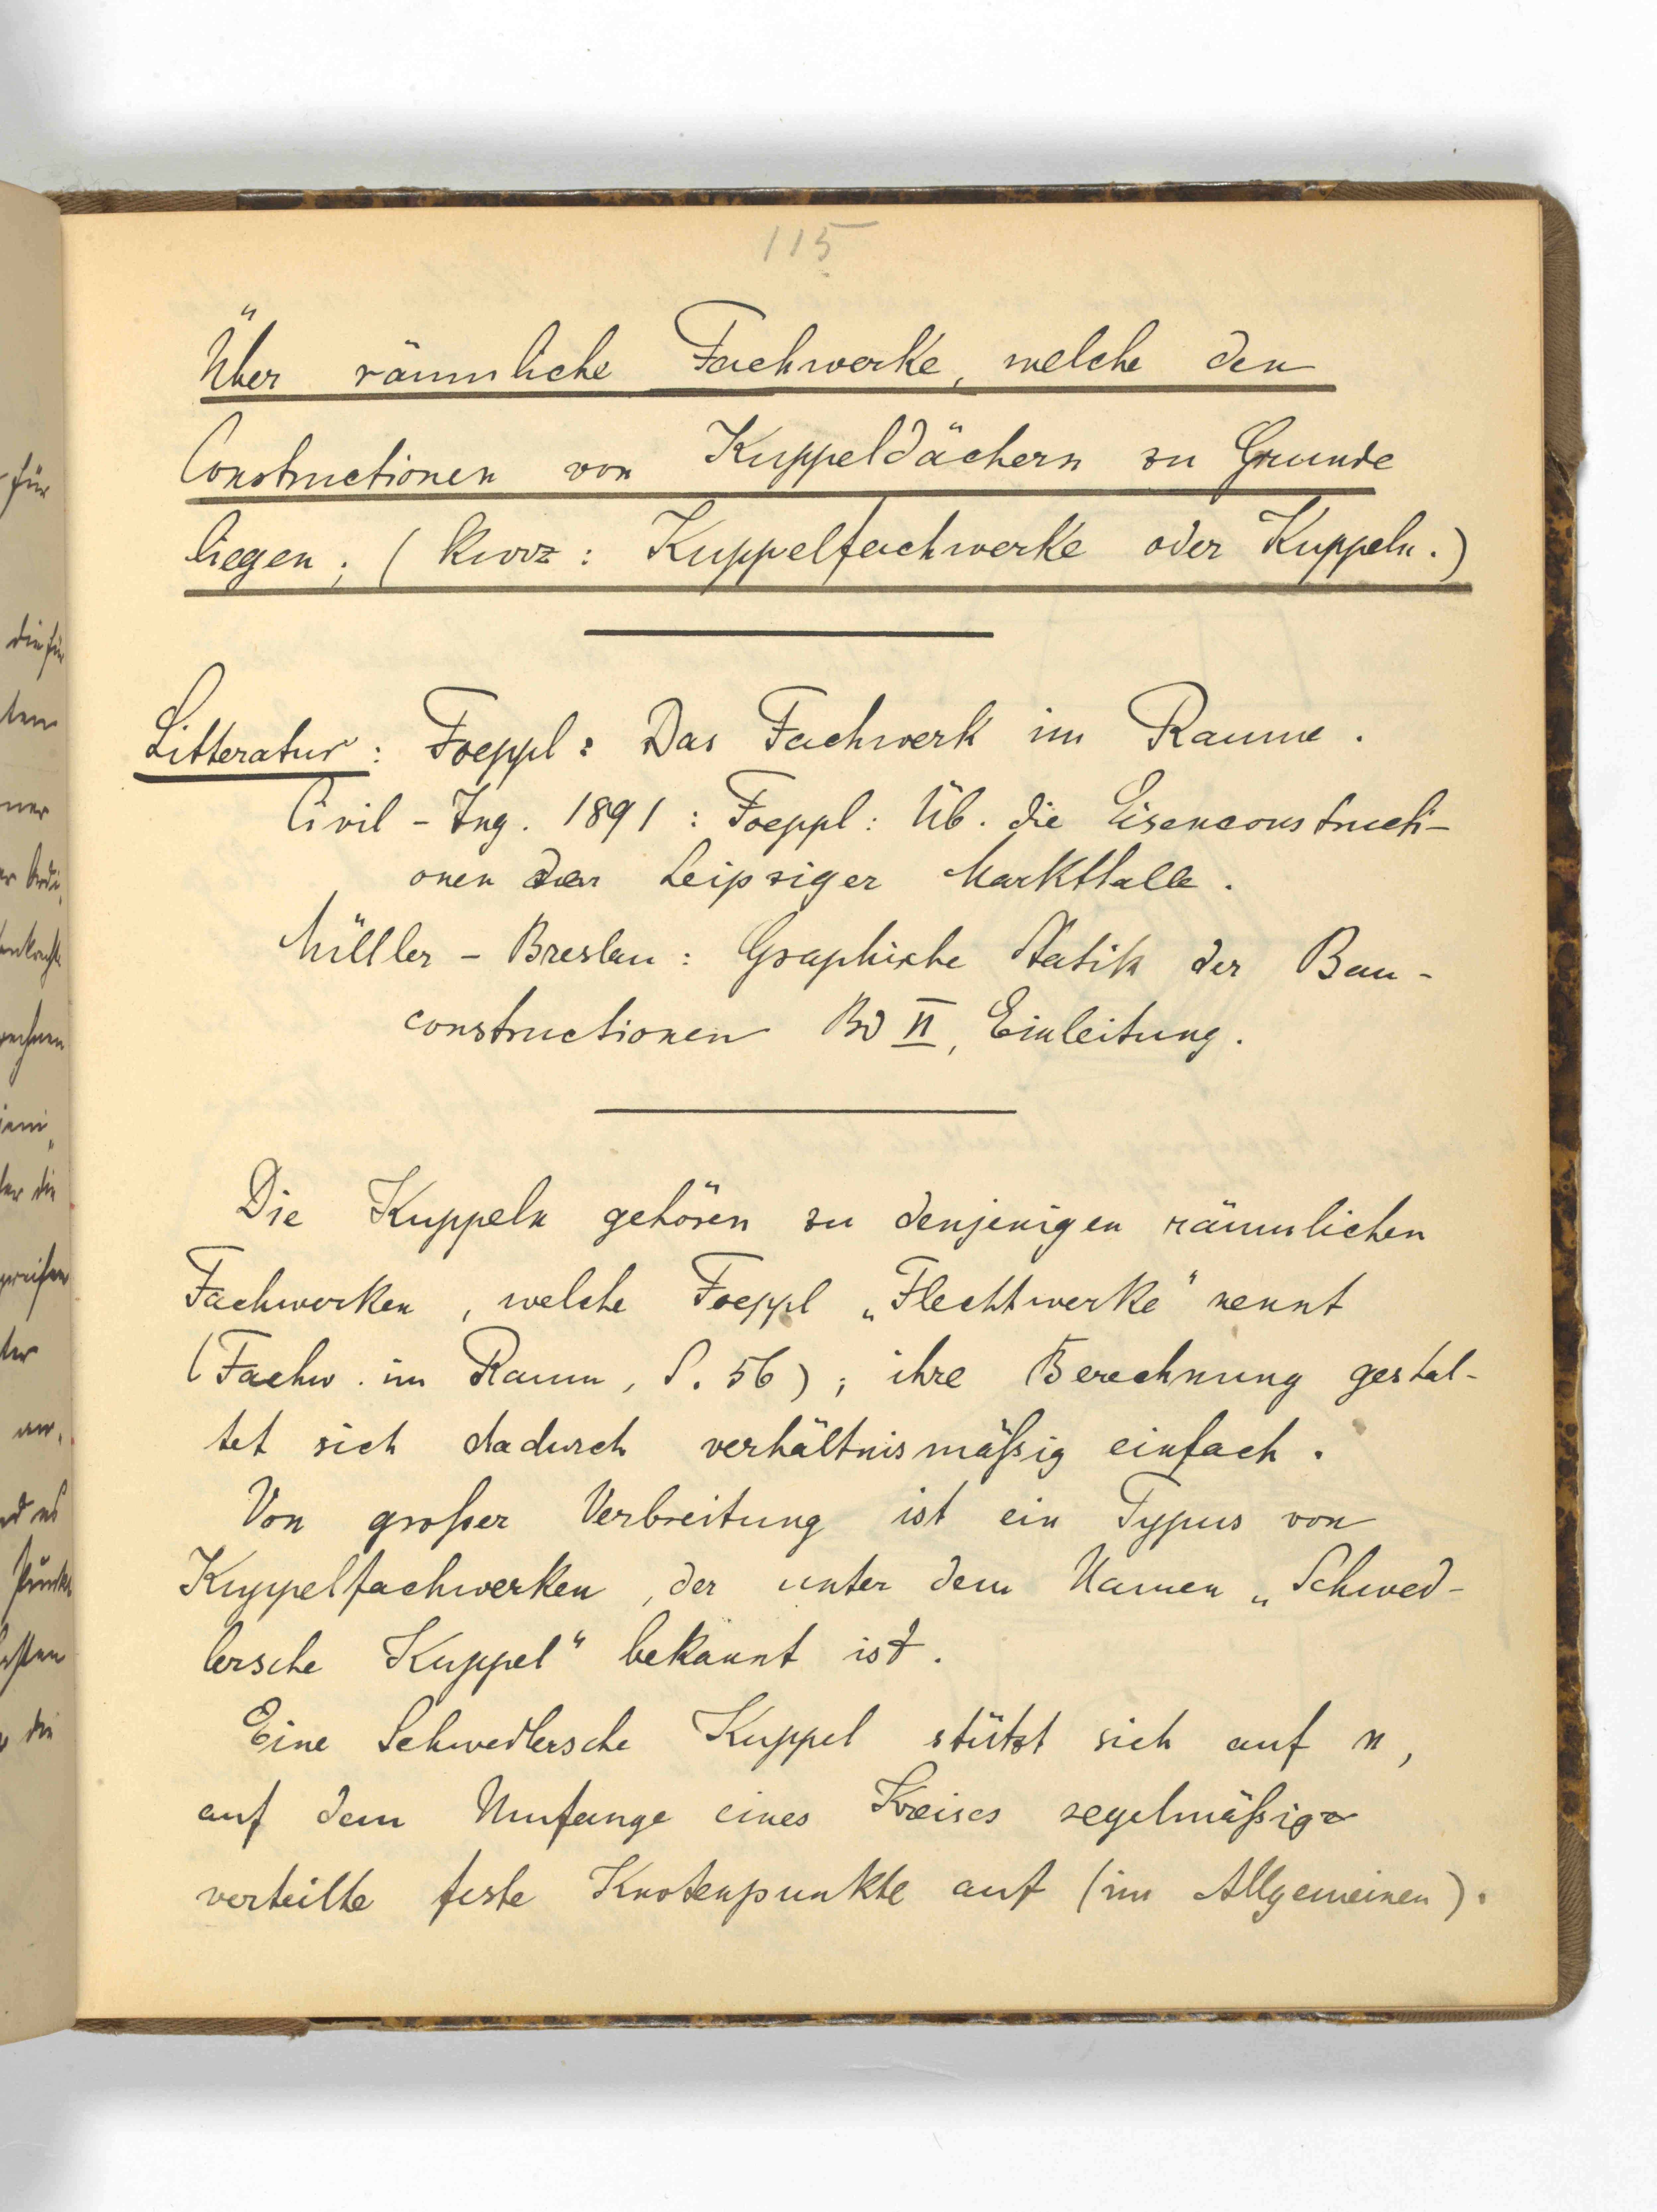 115
Über räumliche Fachwerke, welche den
Constructionen von Kuppeldächern zu Grunde
liegen; (kurz: Kuppelfachwerke oder Kuppeln.)
Litteratur: Foeppl: Das Fachwerk im Raume.
Civil-Ing. 1891: Foeppl: Üb. die Eisenconstructi-
onen der Leipziger Markthalle.
Müller-Breslau: Graphische Statik der Bau-
constructionen Bd II, Einleitung.
Die Kuppeln gehören zu denjenigen räumlichen
Fachwerken, welche Foeppl „Flechtwerke" nennt
(Fachw. im Raum, S. 56); ihre Berechnung gestal-
tet sich dadurch verhältnismäßig einfach.
Von großer Verbreitung ist ein Typus von
Kuppelfachwerken, der unter dem Namen „Schwed-
lersche Kuppel" bekannt ist.
Eine Schwedlersche Kuppel stützt sich auf n,
auf dem Umfange eines Kreises regelmäßig
verteilte feste Knotenpunkte auf (im Allgemeinen).
für
die für
ten
ner
rechnen
ler die
die